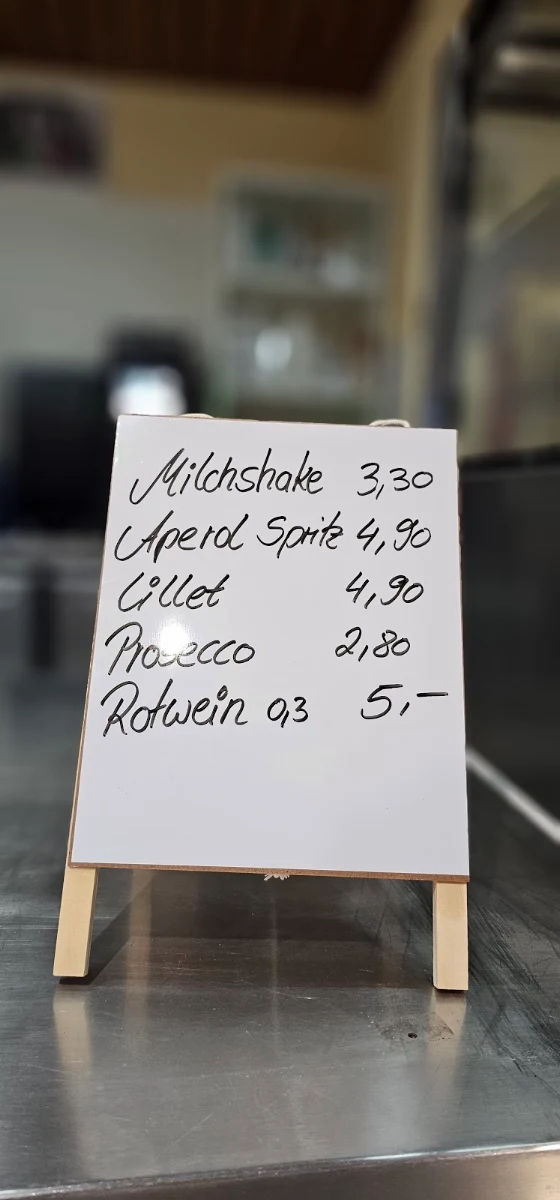 Milchshake 3,30
Aperol Spritz 4,90
Lillet 4,90
Prosecco 2,80
Rotwein 0,3 5,-